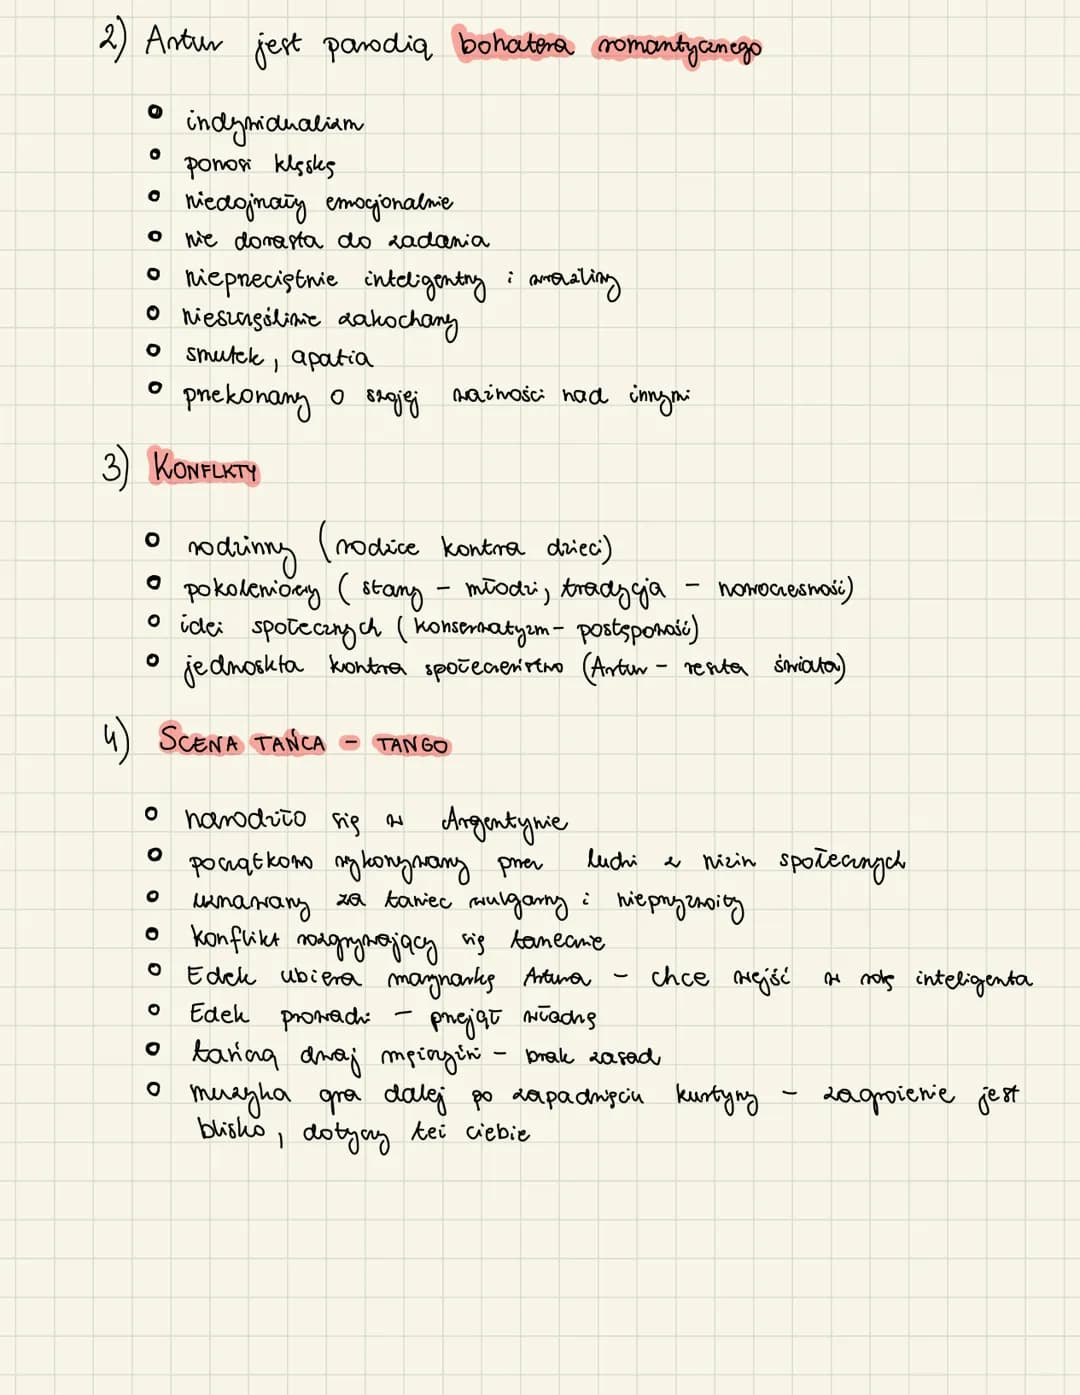 2) Artur jest parodią bohatera romantycznego
• indywidualizm
• ponosi klęskę
• niedojrzały emocjonalnie
• nie dorasta do zadania
• nieprzeciętnie inteligentny i wrażliwy
• nieszczęśliwie zakochany
• smutek, apatia
• przekonany o swojej ważności nad innymi
3) KONFLKTY
• rodzinny (rodzice kontra dzieci)
• pokoleniowy (stary - młodzi, tradycja - nowoczesność)
• idei społecznych (konserwatyzm - postępowość)
• jednoskta kontra społeczeństwo (Artur - reszta świata)
4) SCENA TAŃCA - TANGO
• narodziło się w Argentynie
• początkowo wykonywany przez ludzi z nizin społecznych
• uznawany za taniec wulgarny i nieprzyzwoity
• konflikt rozgrywający się tanecznie
• Edek ubiera marynarkę Artura - chce wejść w rolę inteligenta
• Edek prowadzi - przejął władzę
• tańczą dwaj mężczyźni - brak zasad
• muzyka gra dalej po zapadnięciu kurtyny - zagrożenie jest
blisko, dotyczy też ciebie